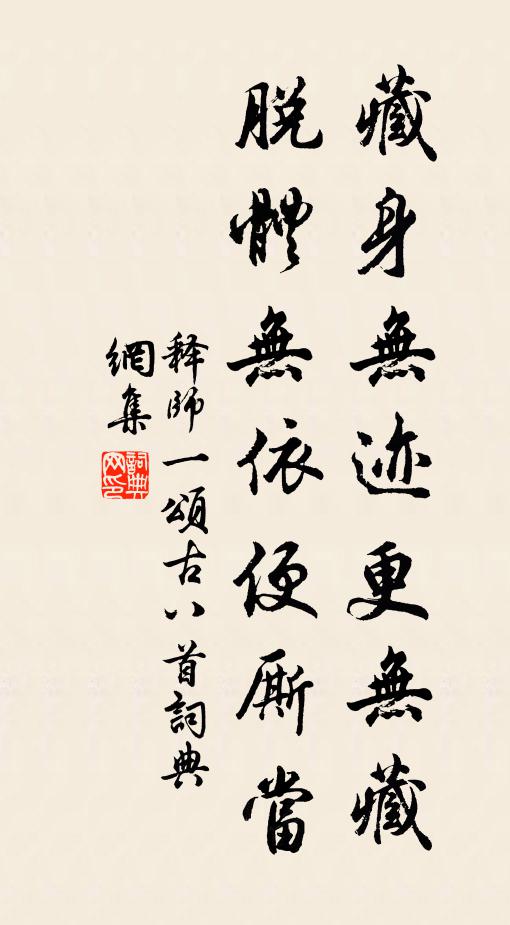 藏身無迹更無藏
脱體無依便厮當
释師一頌古八首詞典
網集
詞典
网印